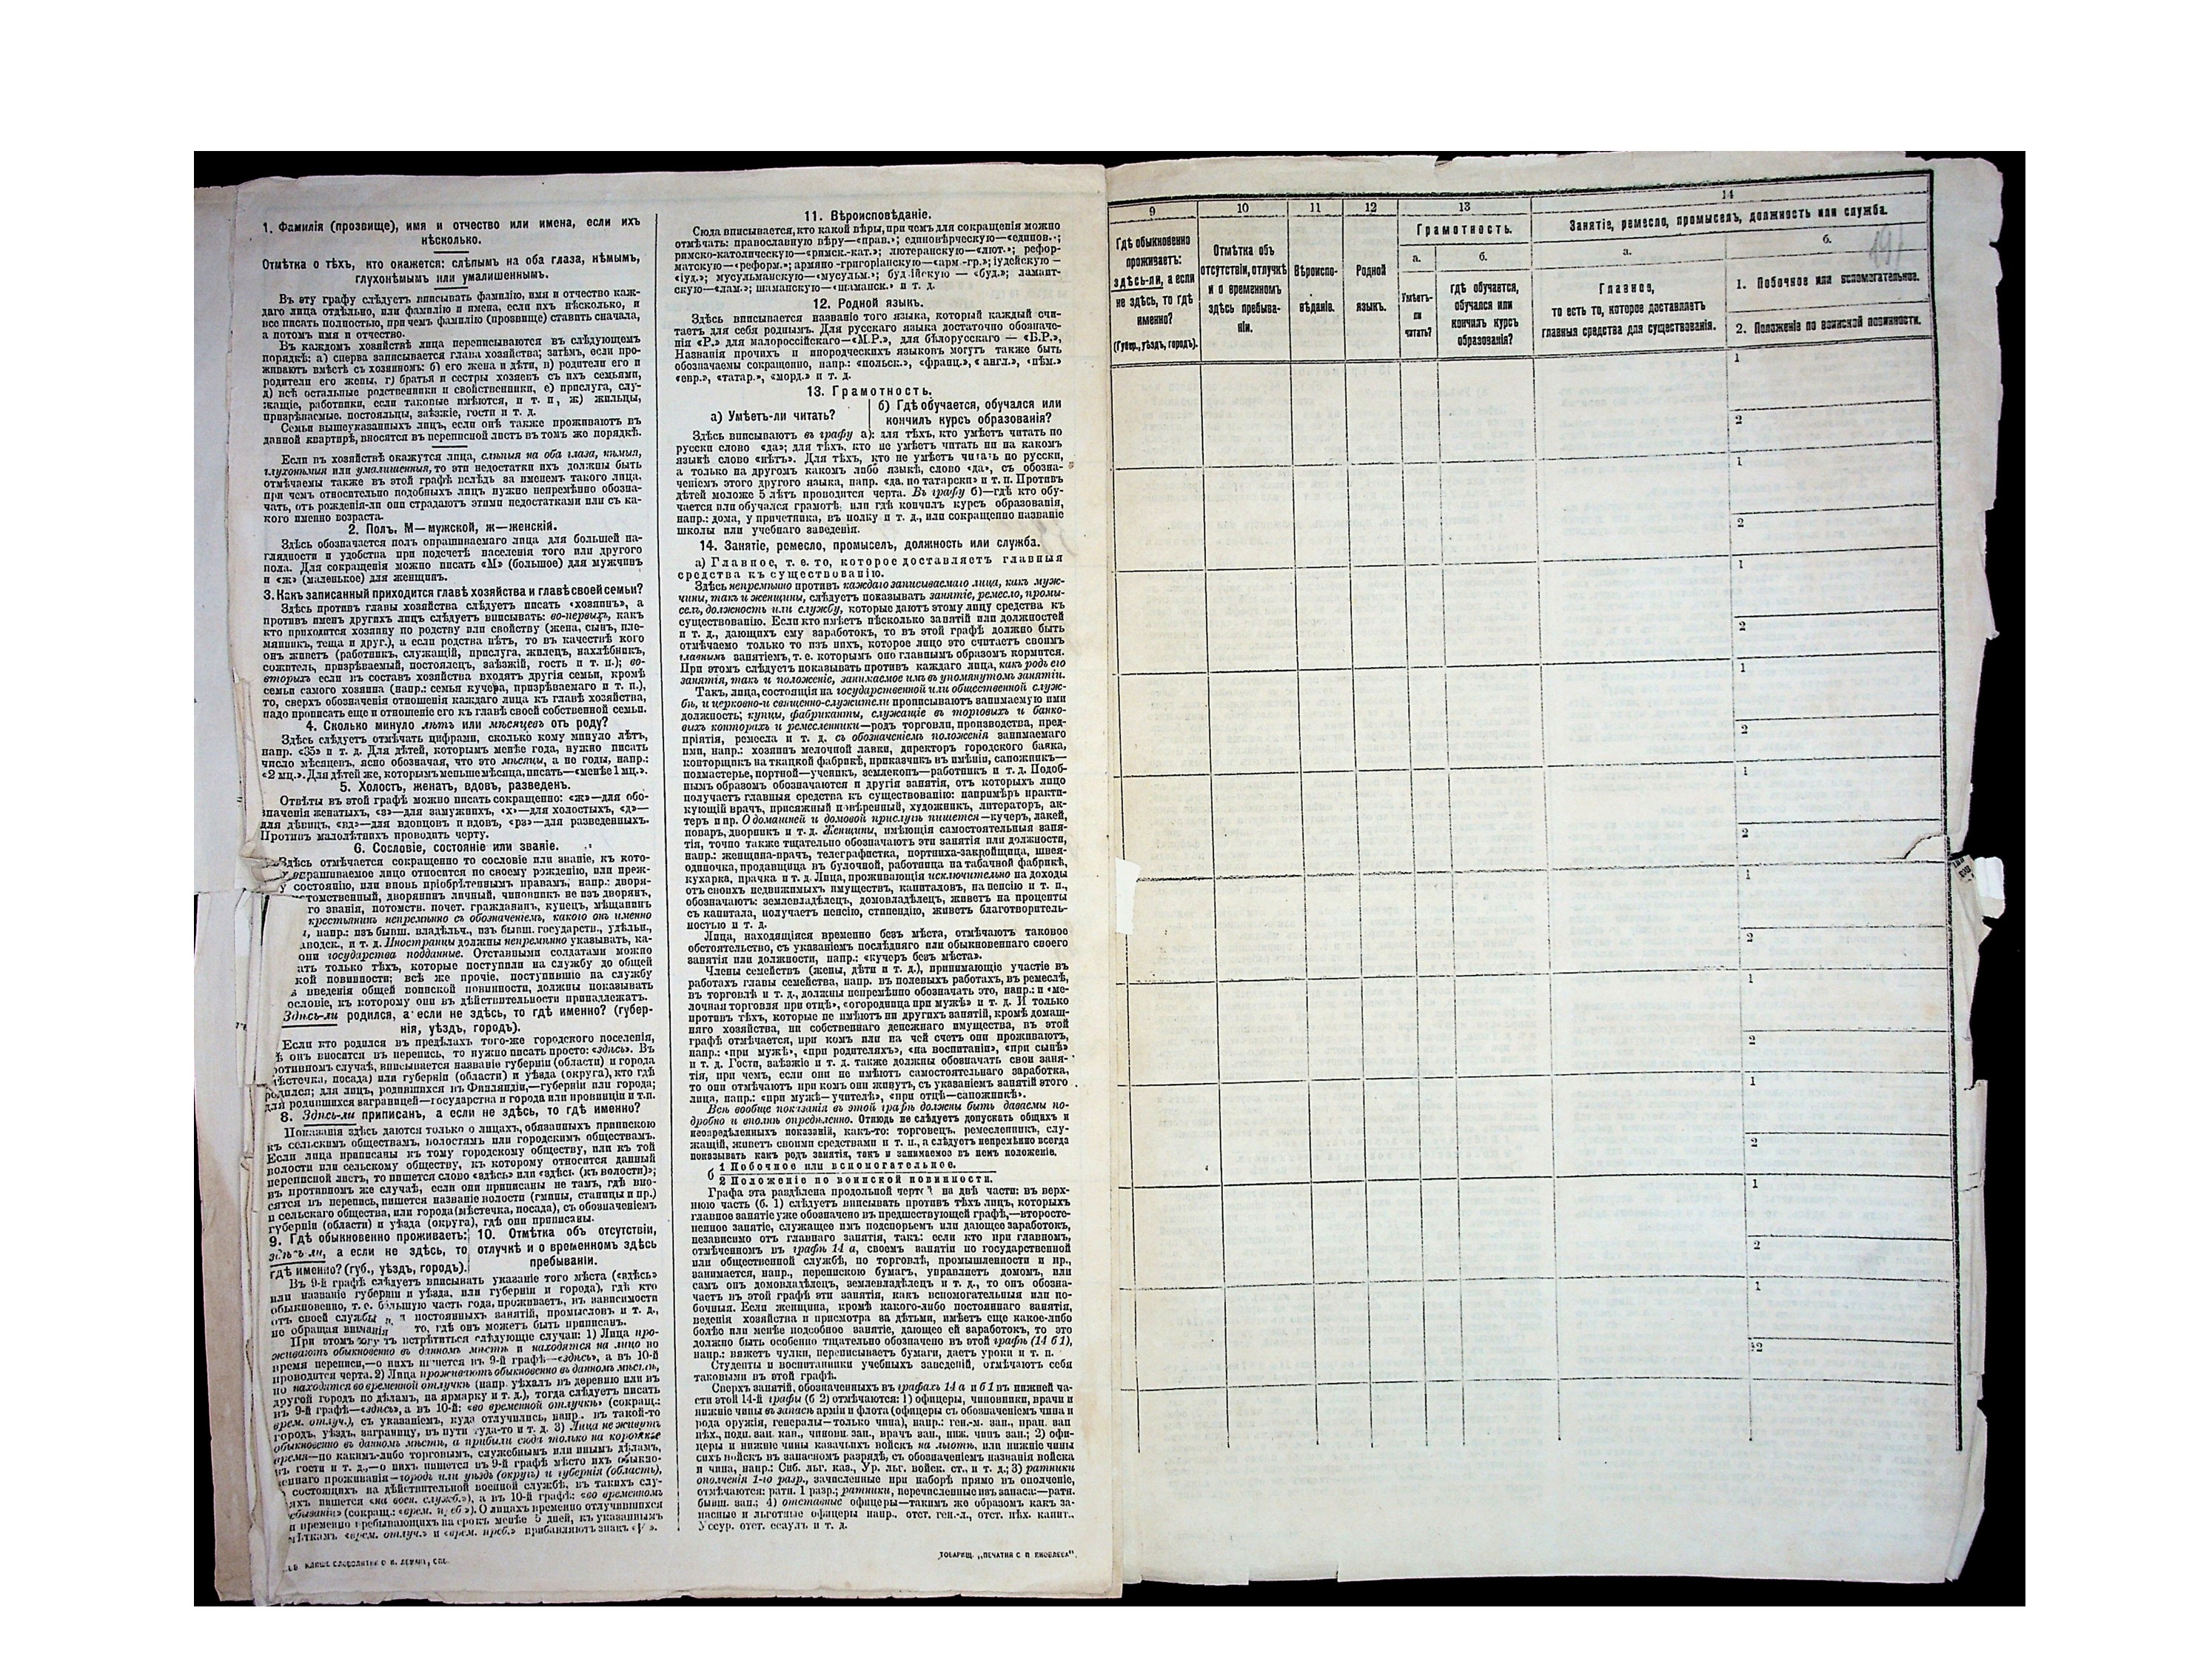 1. Фамилія (прозвище), имя и отчество или имена, если ихъ
нѣсколько.
Отмѣтка о тѣхъ, кто окажется: слѣпымъ на оба глаза, нѣмымъ,
глухонѣмымъ или умалишеннымъ.
Въ эту графу слѣдуетъ вписывать фамилію, имя и отчество каж-
даго лица отдѣльно, или фамилію и имена, если ихъ нѣсколько, и
все писать полностью, при чемъ фамилію (прозвище) ставить сначала,
а потомъ имя и отчество.
Въ каждомъ хозяйствѣ лица переписываются въ слѣдующемъ
порядкѣ: а) сперва записывается глава хозяйства; затѣмъ, если про-
живаютъ вмѣстѣ съ хозяиномъ: б) его жена и дѣти, в) родители его и
родители его жены, г) братья и сестры хозяевъ съ ихъ семьями,
д) всѣ остальные родственники и свойственники, е) прислуга, слу-
жащіе, работники, если таковые имѣются, и т. п., ж) жильцы,
призрѣваемые, постояльцы, заѣзжіе, гости и т. д.
Семьи вышеуказанныхъ лицъ, если онѣ также проживаютъ въ
данной квартирѣ, вносятся въ переписной листъ въ томъ же порядкѣ.
Если въ хозяйствѣ окажутся лица, слѣпыя на оба глаза, нѣмыя,
глухонѣмыя или умалишенныя, то эти недостатки ихъ должны быть
отмѣчаемы также въ этой графѣ вслѣдъ за именемъ такого лица,
при чемъ относительно подобныхъ лицъ нужно непремѣнно обозна-
чать, отъ рожденія-ли они страдаютъ этими недостатками или съ ка-
кого именно возраста.
2. Полъ. М—мужской, ж—женскій.
Здѣсь обозначается полъ опрашиваемаго лица для большей на-
глядности и удобства при подсчетѣ населенія того или другого
пола. Для сокращенія можно писать «М» (большое) для мужчинъ
и «ж» (маленькое) для женщинъ.
3. Какъ записанный приходится главѣ хозяйства и главѣ своей семьи?
Здѣсь противъ главы хозяйства слѣдуетъ писать «хозяинъ», а
противъ именъ другихъ лицъ слѣдуетъ вписывать: во-первыхъ, какъ
кто приходится хозяину по родству или свойству (жена, сынъ, пле-
мянникъ, теща и друг.), а если родства нѣтъ, то въ качествѣ кого
онъ живетъ (работникъ, служащій, прислуга, жилецъ, нахлѣбникъ,
сожитель, призрѣваемый, постоялецъ, заѣзжій, гость и т. п.); во-
вторыхъ если въ составъ хозяйства входятъ другія семьи, кромѣ
семьи самого хозяина (напр.: семья кучера, призрѣваемаго и т. п.),
то, сверхъ обозначенія отношенія каждаго лица къ главѣ хозяйства,
надо прописать еще и отношеніе его къ главѣ своей собственной семьи.
4. Сколько минуло лѣтъ или мѣсяцевъ отъ роду?
Здѣсь слѣдуетъ отмѣчать цифрами, сколько кому минуло лѣтъ,
напр. «35» и т. д. Для дѣтей, которымъ менѣе года, нужно писать
число мѣсяцевъ, ясно обозначая, что это мѣсяцы, а не годы, напр.:
«2 мц.». Для дѣтей же, которымъ меньше мѣсяца, писать—«менѣе 1 мц.».
5. Холостъ, женатъ, вдовъ, разведенъ.
Отвѣты въ этой графѣ можно писать сокращенно: «ж»—для обо-
значенія женатыхъ, «з»—для замужнихъ, «х»—для холостыхъ, «д»—
для дѣвицъ, «вд»—для вдовцовъ и вдовъ, «рз»—для разведенныхъ.
Противъ малолѣтнихъ проводить черту.
6. Сословіе, состояніе или званіе.
Здѣсь отмѣчается сокращенно то сословіе или званіе, къ кото-
опрашиваемое лицо относится по своему рожденію, или преж-
у состоянію, или вновь пріобрѣтеннымъ правамъ; напр.: дворя-
томственный, дворянинъ личный, чиновникъ не изъ дворянъ,
го званія, потомств. почет. гражданинъ, купецъ, мѣщанинъ
крестьянинъ непремѣнно съ обозначеніемъ, какого онъ именно
напр.: изъ бывш. владѣльч., изъ бывш. государств., удѣльн.,
аводск., и т. д. Иностранцы должны непремѣнно указывать, ка-
они государства подданные. Отставными солдатами можно
ать только тѣхъ, которые поступили на службу до общей
кой повинности; всѣ же прочіе, поступившіе на службу
введенія общей воинской повинности, должны показывать
ословіе, къ которому они въ дѣйствительности принадлежатъ.
Здѣсь-ли родился, а если не здѣсь, то гдѣ именно? (губер-
нія, уѣздъ, городъ).
Если кто родился въ предѣлахъ того-же городского поселенія,
ѣ онъ вносится въ перепись, то нужно писать просто: «здѣсь». Въ
ротивномъ случаѣ, вписывается названіе губерніи (области) и города
мѣстечка, посада) или губерніи (области) и уѣзда (округа), кто гдѣ
родился; для лицъ, родившихся въ Финляндіи,—губерніи или города;
для родившихся заграницей—государства и города или провинціи и т.п.
8. Здѣсь-ли приписанъ, а если не здѣсь, то гдѣ именно?
Показанія здѣсь даются только о лицахъ, обязанныхъ припискою
къ сельскимъ обществамъ, волостямъ или городскимъ обществамъ.
Если лица приписаны къ тому городскому обществу, или къ той
волости или сельскому обществу, къ которому относится данный
переписной листъ, то пишется слово «здѣсь» или «здѣсь (къ волости)»;
въ противномъ же случаѣ, если они приписаны не тамъ, гдѣ вно-
сятся въ перепись, пишется названіе волости (гмины, станицы и пр.)
и сельскаго общества, или города (мѣстечка, посада), съ обозначеніемъ
губерніи (области) и уѣзда (округа), гдѣ они приписаны.
9. Гдѣ обыкновенно проживаетъ:
здѣсь-ли, а если не здѣсь, то
гдѣ именно? (губ., уѣздъ, городъ).
10. Отмѣтка объ отсутствіи,
отлучкѣ и о временномъ здѣсь
пребываніи.
Въ 9-й графѣ слѣдуетъ вписывать указаніе того мѣста («здѣсь»
или названіе губерніи и уѣзда, или губерніи и города), гдѣ кто
обыкновенно, т. е. большую часть года, проживаетъ, въ зависимости
отъ своей службы постоянныхъ занятій, промысловъ и т. д.,
не обращая вниманія то, гдѣ онъ можетъ быть приписанъ.
При этомъ могутъ встрѣтиться слѣдующіе случаи: 1) Лица про-
живаютъ обыкновенно въ данномъ мѣстѣ и находятся на лицо во
время переписи,—о нихъ пишется въ 9-й графѣ—«здѣсь», а въ 10-й
проводится черта. 2) Лица проживаютъ обыкновенно въ данномъ мѣстѣ,
но находятся во временной отлучкѣ (напр. уѣхалъ въ деревню или въ
другой городъ по дѣламъ, на ярмарку и т. д.), тогда слѣдуетъ писать
въ 9-й графѣ—«здѣсь», а въ 10-й: «во временной отлучкѣ» (сокращ.:
врем. отлуч.), съ указаніемъ, куда отлучились, напр. въ такой-то
городъ, уѣздъ, заграницу, въ пути туда-то и т. д. 3) Лица не живутъ
обыкновенно въ данномъ мѣстѣ, а прибыли сюда только на короткое
время—по какимъ-либо торговымъ, служебнымъ или инымъ дѣламъ,
въ гости и т. д.,—о нихъ пишется въ 9-й графѣ мѣсто ихъ обыкно-
веннаго проживанія—городъ или уѣздъ (округъ) и губернія (область),
состоящихъ на дѣйствительной военной службѣ, въ такихъ слу-
аяхъ пишется «на воен. служб.»), а въ 10-й графѣ: «во временномъ
ебываніи» (сокращ.: «врем. преб»). О лицахъ временно отлучившихся
и временно пребывающихъ на срокъ менѣе 5 дней, къ указаннымъ
мѣткамъ «врем. отлуч.» и «врем. преб.» прибавляютъ знакъ «V».
11. Вѣроисповѣданіе.
Сюда вписывается, кто какой вѣры, при чемъ для сокращенія можно
отмѣчать: православную вѣру—«прав.»; единовѣрческую—«единов.»;
римско-католическую—«римск.-кат.»; лютеранскую—«лют.»; рефор-
матскую—«реформ.»; армяно-григоріанскую—«арм.-гр.»; іудейскую—
«іуд.»; мусульманскую—«мусульм.»; буддійскую — «буд.»; ламаит-
скую—«лам.»; шаманскую—«шаманск.» и т. д.
12. Родной языкъ.
Здѣсь вписывается названіе того языка, который каждый счи-
таетъ для себя роднымъ. Для русскаго языка достаточно обозначе-
нія «Р.» для малороссійскаго—«М.Р.», для бѣлорусскаго — «Б.Р.»,
Названія прочихъ и инородческихъ языковъ могутъ также быть
обозначаемы сокращенно, напр.: «польск.», «франц.», «англ.», «нѣм.»
«евр.», «татар.», «морд.» и т. д.
13. Грамотность.
а) Умѣетъ-ли читать?
б) Гдѣ обучается, обучался или
кончилъ курсъ образованія?
Здѣсь вписываютъ въ графу а): для тѣхъ, кто умѣетъ читать по
русски слово «да»; для тѣхъ, кто не умѣетъ читать ни на какомъ
языкѣ слово «нѣтъ». Для тѣхъ, кто не умѣетъ читать по русски,
а только на другомъ какомъ либо языкѣ, слово «да», съ обозна-
ченіемъ этого другого языка, напр. «да, по татарски» и т. п. Противъ
дѣтей моложе 5 лѣтъ проводится черта. Въ графу б)—гдѣ кто обу-
чается или обучался грамотѣ, или гдѣ кончилъ курсъ образованія,
напр.: дома, у причетника, въ полку и т. д., или сокращенно названіе
школы или учебнаго заведенія.
14. Занятіе, ремесло, промыселъ, должность или служба.
а) Главное, т. е. то, которое доставляетъ главныя
средства къ существованію.
Здѣсь непремѣнно противъ каждаго записываемаго лица, какъ муж-
чины, такъ и женщины, слѣдуетъ показывать занятіе, ремесло, промы-
селъ, должность или службу, которые даютъ этому лицу средства къ
существованію. Если кто имѣетъ нѣсколько занятій или должностей
и т. д., дающихъ ему заработокъ, то въ этой графѣ должно быть
отмѣчаемо только то изъ нихъ, которое лицо это считаетъ своимъ
главнымъ занятіемъ, т. е. которымъ оно главнымъ образомъ кормится.
При этомъ слѣдуетъ показывать противъ каждаго лица, какъ родъ его
занятія, такъ и положеніе, занимаемое имъ въ упомянутомъ занятіи.
Такъ, лица, состоящія на государственной или общественной служ-
бѣ, и церковно-и священно-служители прописываютъ занимаемую ими
должность; купцы, фабриканты, служащіе въ торговыхъ и банко-
выхъ конторахъ и ремесленники—родъ торговли, производства, пред-
пріятія, ремесла и т. д. съ обозначеніемъ положенія занимаемаго
ими, напр.: хозяинъ мелочной лавки, директоръ городского банка,
конторщикъ на ткацкой фабрикѣ, приказчикъ въ имѣніи, сапожникъ—
подмастерье, портной—ученикъ, землекопъ—работникъ и т. д. Подоб-
нымъ образомъ обозначаются и другія занятія, отъ которыхъ лицо
получаетъ главныя средства къ существованію: напримѣръ практи-
кующій врачъ, присяжный повѣренный, художникъ, литераторъ, ак-
теръ и пр. О домашней и домовой прислугѣ пишется—кучеръ, лакей,
поваръ, дворникъ и т. д. Женщины, имѣющія самостоятельныя заня-
тія, точно также тщательно обозначаютъ эти занятія или должности,
напр.: женщина-врачъ, телеграфистка, портниха-закройщица, швея-
одиночка, продавщица въ булочной, работница на табачной фабрикѣ,
кухарка, прачка и т. д. Лица, проживающія исключительно на доходы
отъ своихъ недвижимыхъ имуществъ, капиталовъ, на пенсію и т. п.,
обозначаютъ: землевладѣлецъ, домовладѣлецъ, живетъ на проценты
съ капитала, получаетъ пенсію, стипендію, живетъ благотворитель-
ностью и т. д.
Лица, находящіяся временно безъ мѣста, отмѣчаютъ таковое
обстоятельство, съ указаніемъ послѣдняго или обыкновеннаго своего
занятія или должности, напр.: «кучеръ безъ мѣста».
Члены семействъ (жены, дѣти и т. д.), принимающіе участіе въ
работахъ главы семейства, напр. въ полевыхъ работахъ, въ ремеслѣ,
въ торговлѣ и т. д., должны непремѣнно обозначать это, напр.: и «ме-
лочная торговля при отцѣ», «огородница при мужѣ» и т. д. И только
противъ тѣхъ, которые не имѣютъ ни другихъ занятій, кромѣ домаш-
няго хозяйства, ни собственнаго денежнаго имущества, въ этой
графѣ отмѣчается, при комъ или на чей счетъ они проживаютъ,
напр.: «при мужѣ», «при родителяхъ», «на воспитаніи», «при сынѣ»
и т. д. Гости, заѣзжіе и т. д. также должны обозначать свои заня-
тія, при чемъ, если они не имѣютъ самостоятельнаго заработка,
то они отмѣчаютъ при комъ они живутъ, съ указаніемъ занятій этого
лица, напр.: «при мужѣ—учителѣ», «при отцѣ—сапожникѣ».
Всѣ вообще показанія въ этой графѣ должны быть даваемы по-
дробно и вполнѣ опредѣленно. Отнюдь не слѣдуетъ допускать общихъ и
неопредѣленныхъ показаній, какъ-то: торговецъ, ремесленникъ, слу-
жащій, живетъ своими средствами и т. п., а слѣдуетъ непремѣнно всегда
показывать какъ родъ занятія, такъ и занимаемое въ немъ положеніе.
1 Побочное или вспомогательное.
б
2 Положеніе по воинской повинности.
Графа эта раздѣлена продольной чертой на двѣ части: въ верх-
нюю часть (б. 1) слѣдуетъ вписывать противъ тѣхъ лицъ, которыхъ
главное занятіе уже обозначено въ предшествующей графѣ,—второсте-
пенное занятіе, служащее имъ подспорьемъ или дающее заработокъ,
независимо отъ главнаго занятія, такъ: если кто при главномъ,
отмѣченномъ въ графѣ 14 а, своемъ занятіи по государственной
или общественной службѣ, по торговлѣ, промышленности и пр.,
занимается, напр., перепискою бумагъ, управляетъ домомъ, или
самъ онъ домовладѣлецъ, землевладѣлецъ и т. д., то онъ обозна-
чаетъ въ этой графѣ эти занятія, какъ вспомогательныя или по-
бочныя. Если женщина, кромѣ какого-либо постояннаго занятія,
веденія хозяйства и присмотра за дѣтьми, имѣетъ еще какое-либо
болѣе или менѣе подсобное занятіе, дающее ей заработокъ, то это
должно быть особенно тщательно обозначено въ этой графѣ (14 б 1),
напр.: вяжетъ чулки, переписываетъ бумаги, даетъ уроки и т. п.
Студенты и воспитанники учебныхъ заведеній, отмѣчаютъ себя
таковыми въ этой графѣ.
Сверхъ занятій, обозначенныхъ въ графахъ 14 а и б 1 въ нижней ча-
сти этой 14-й графы (б 2) отмѣчаются: 1) офицеры, чиновники, врачи и
нижніе чины въ запасѣ арміи и флота (офицеры съ обозначеніемъ чина и
рода оружія, генералы—только чина), напр.: ген.-м. зап., прап. зап
пѣх., подп. зап. кав., чиновн. зап., врачъ зап., ниж. чинъ зап.; 2) офи-
церы и нижніе чины казачьихъ войскъ на льготѣ, или нижніе чины
сихъ войскъ въ запасномъ разрядѣ, съ обозначеніемъ названія войска
и чина, напр.: Сиб. льг. каз., Ур. льг. войск. ст., и т. д.; 3) ратники
ополченія 1-го разр., зачисленные при наборѣ прямо въ ополченіе,
отмѣчаются: ратн. 1 разр.; ратники, перечисленные изъ запаса:—ратн.
бывш. зап.; 4) отставные офицеры—такимъ же образомъ какъ за-
пасные и льготные офицеры напр., отст. ген.-л., отст. пѣх. капит.,
Уссур. отст. есаулъ и т. д.
ТОВАРИЩ. „ПЕЧАТНЯ С. П. ЯКОВЛЕВА".
9
10
11
12
13
14
Гдѣ обыкновенно
проживаетъ:
здѣсь-ли, а если
не здѣсь, то гдѣ
именно?
(Губер., уѣздъ, городъ).
Отмѣтка объ
отсутствіи, отлучкѣ
и о временномъ
здѣсь пребыва-
ніи.
Вѣроиспо-
вѣданіе.
Родной
языкъ.
Грамотность.
а.
Умѣетъ-
ли
читать?
б.
гдѣ обучается,
обучался или
кончилъ курсъ
образованія?
Занятіе, ремесло, промыселъ, должность или служба.
а.
Главное,
то есть то, которое доставляетъ
главныя средства для существованія.
б.
1. Побочное или вспомогательное.
2. Положеніе по воинской повинности.
1
2
1
2
1
2
1
2
1
2
1
2
1
2
1
2
1
2
1
2